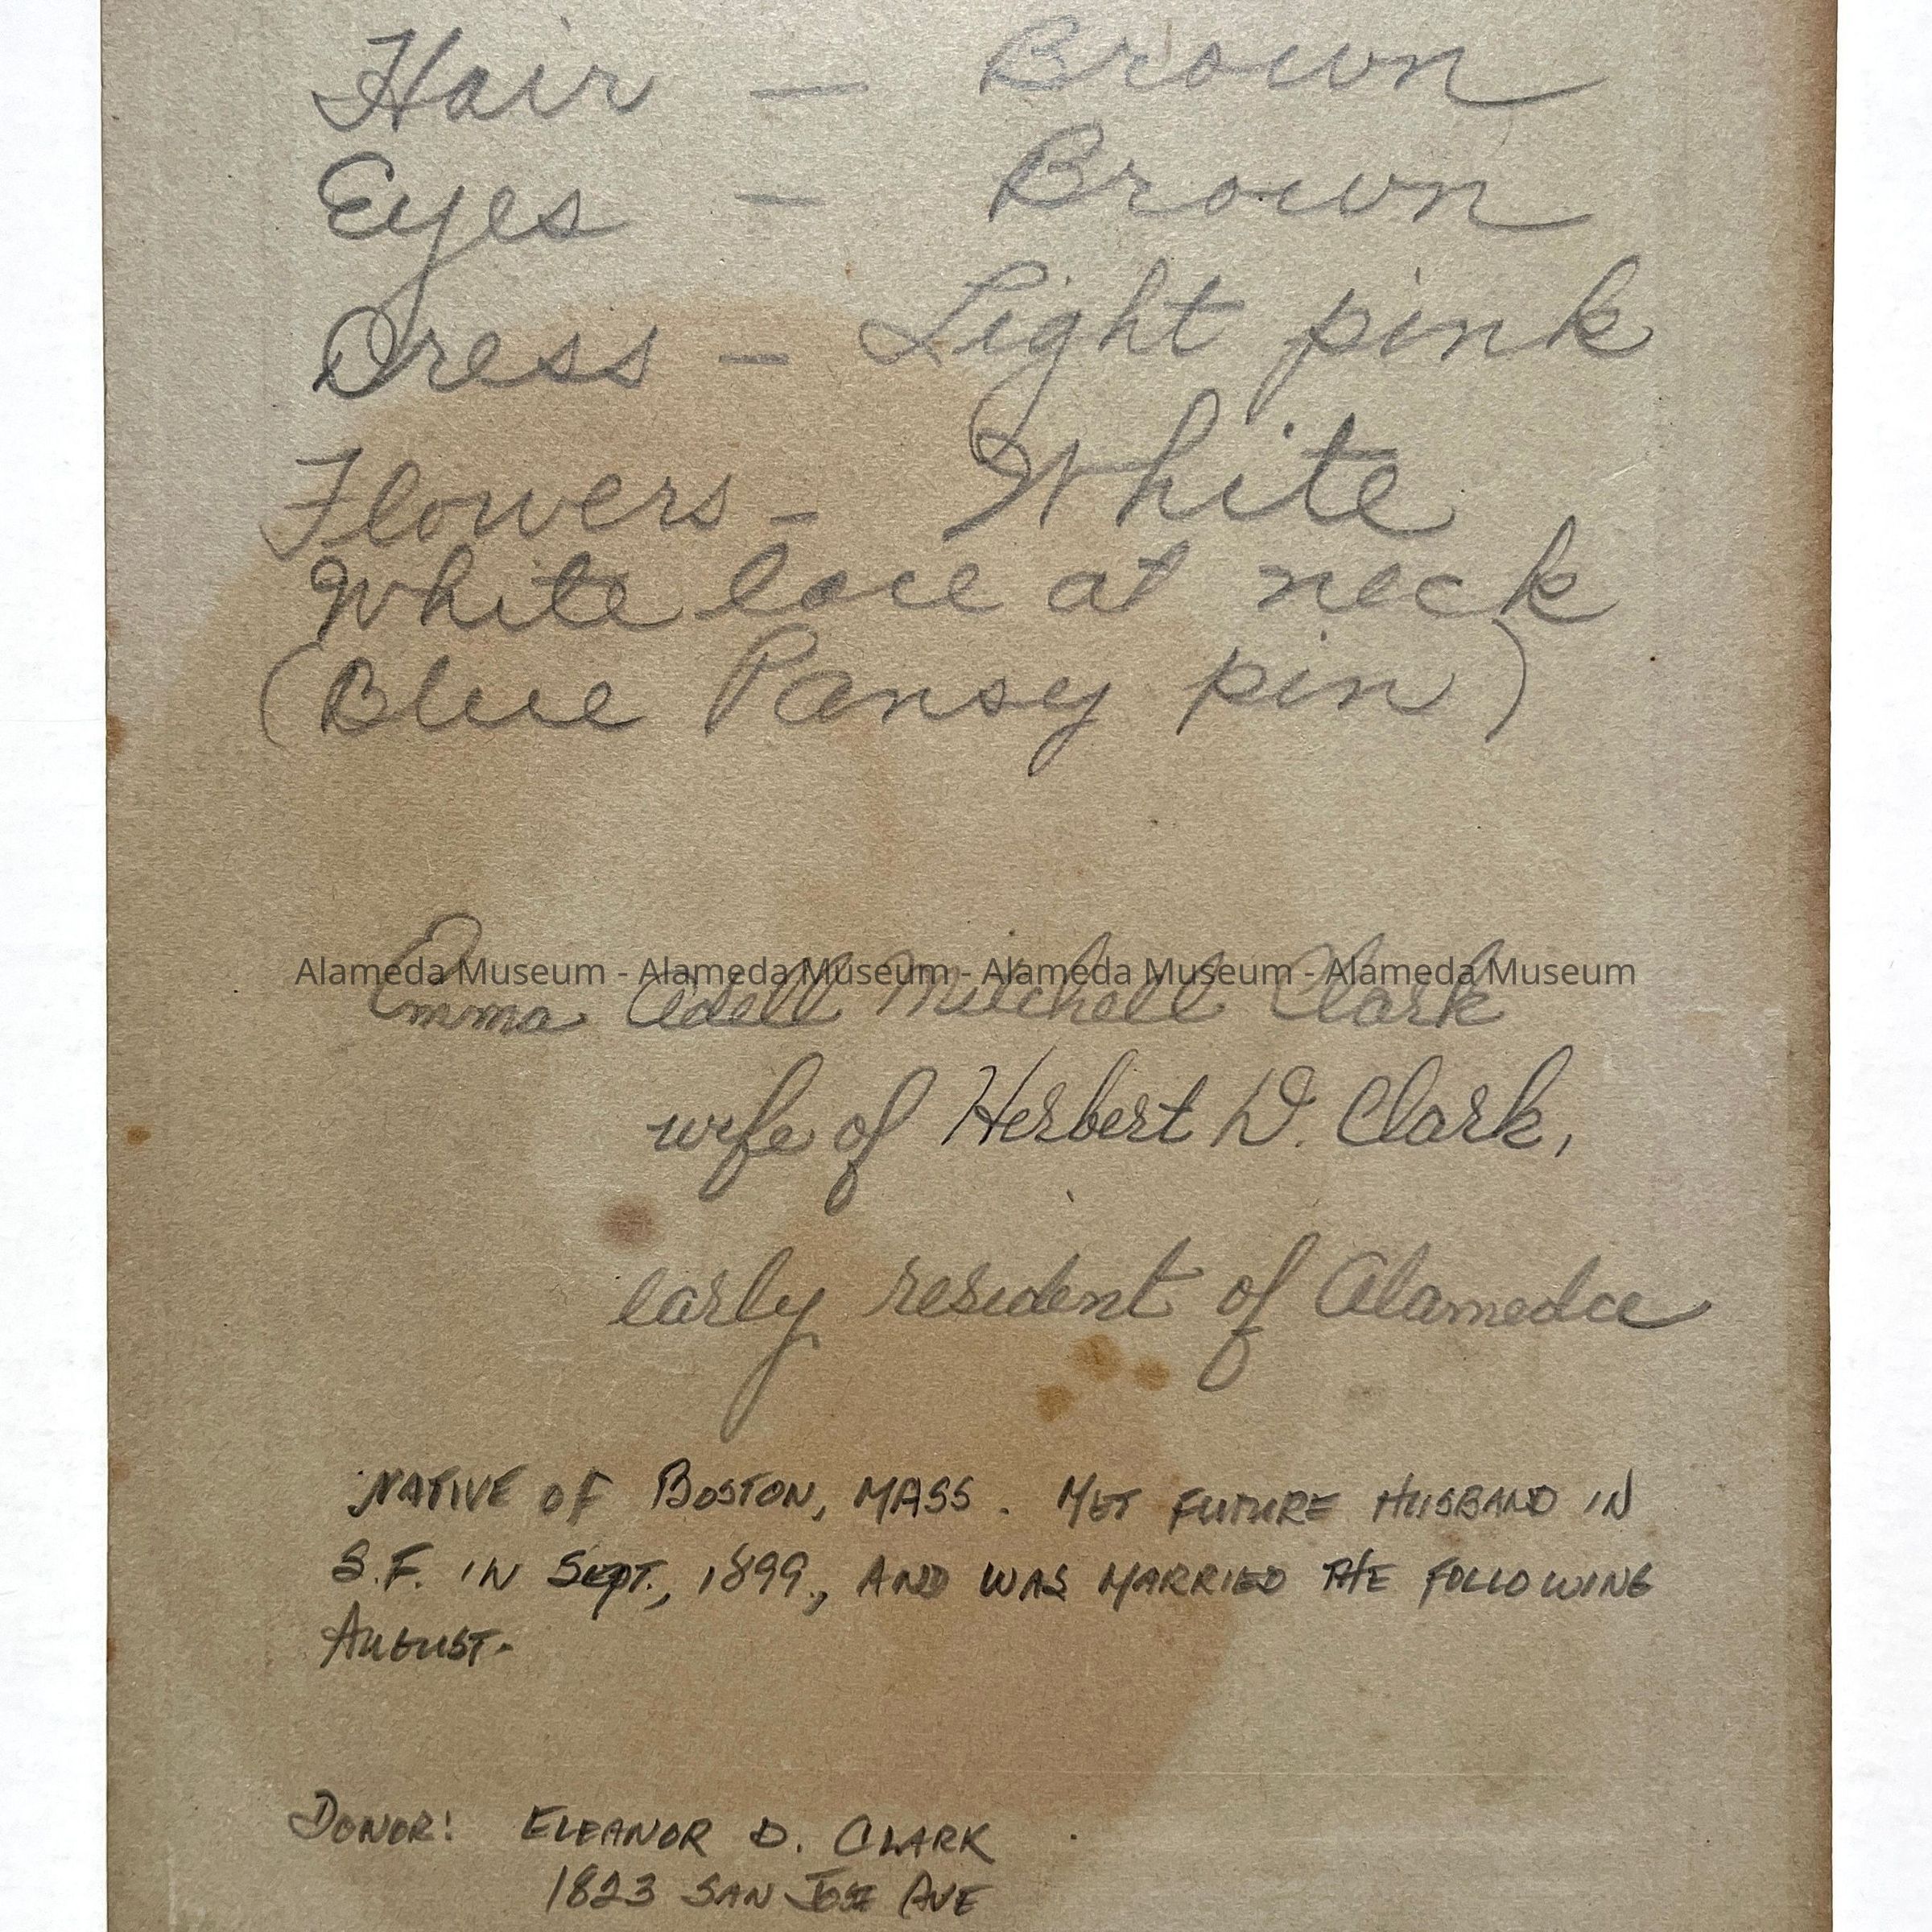 Hair — Brown
Eyes - Brown
Dress - Light pink
Flowers - White
White lace at neck
(Blue Pansy pin)
Alameda Museum - Alameda Museum - Alameda Museum - Alameda Museum
Emma Adell Mitchell Clark
wife of Herbert D. Clark,
early resident of Alameda
NATIVE OF BOSTON, MASS. MET FUTURE HUSBAND IN
S.F. IN SEPT., 1899, AND WAS MARRIED THE FOLLOWING
AUGUST.
DONOR: ELEANOR D. CLARK
1823 SAN JOSE AVE